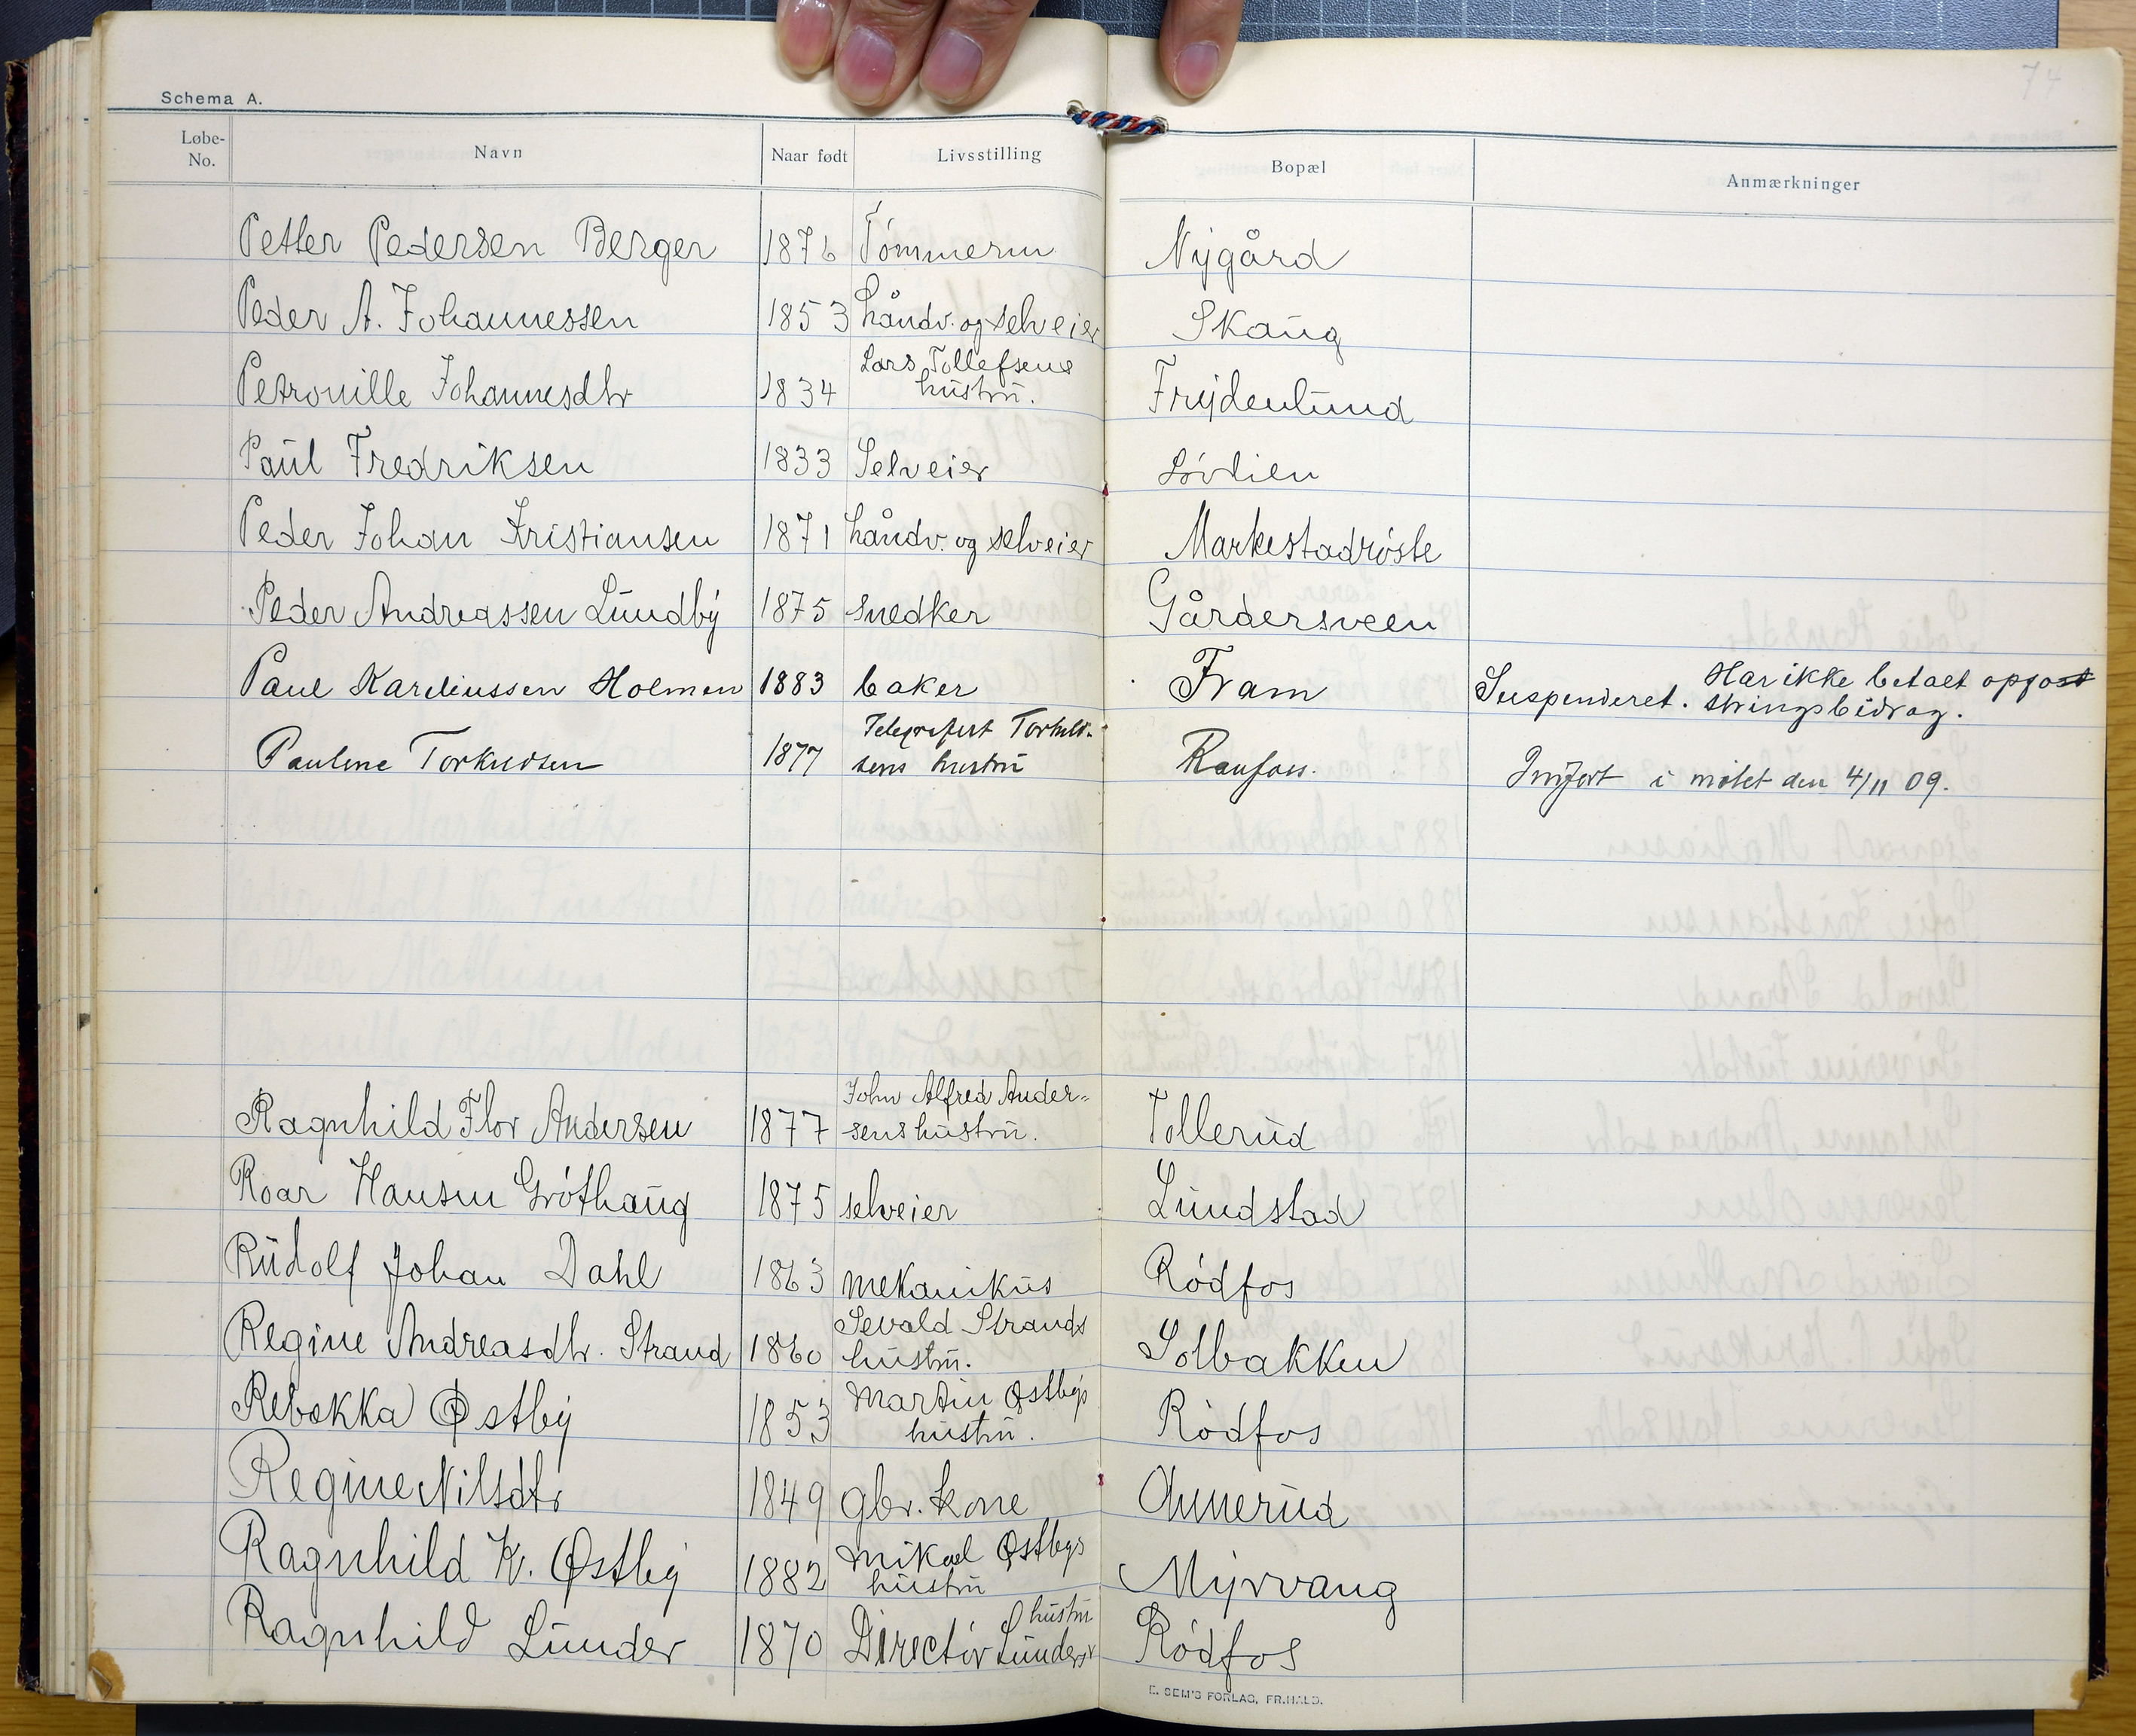 74
Schema A.
Løbe-No. Navn Naar født Livsstilling Bopæl Anmærkninger
Petter Pedersen Berger 1876 Tømmerm Nygård
Peder A. Johannessen 1853 håndv. og selveier Skaug
Petronille Johannesdtr 1834 Lars Tollefsens hustru. Frydenlund
Paul Fredriksen 1833 Selveier Lövlien
Peder Johan Kristiansen 1871 håndv. og selveier Markestadröste
Peder Andreassen Lundby 1875 snedker Gårdersveen
Paul Kareliussen Holmen 1883 baker Fram Suspenderet. Har ikke betalt opfostringsbidrag.
Pauline Torkildsen 1877 Telegrafist Torkildsens hustru Raufoss. Innfört i mötet den 4/11 09.
Ragnhild Flor Andersen 1877 John Alfred Andersens hustru. Tollerud
Roar Hansen Gröthaug 1875 selveier Lundstad
Rudolf Johan Dahl 1863 mekanikus Rödfos
Regine Andreasdtr. Strand 1860 Sevald Strands hustru. Solbakken
Rebekka Østby 1853 Martin Østbys hustru. Rödfos
Regine Nilsdtr 1849 gbr. kone Annerud
Ragnhild K. Østby 1882 Mikael Østbys hustru Myrvang
Ragnhild Lunder 1870 Directör Lunders hustru Rödfos
E. SEM'S FORLAG, FR.HALD.